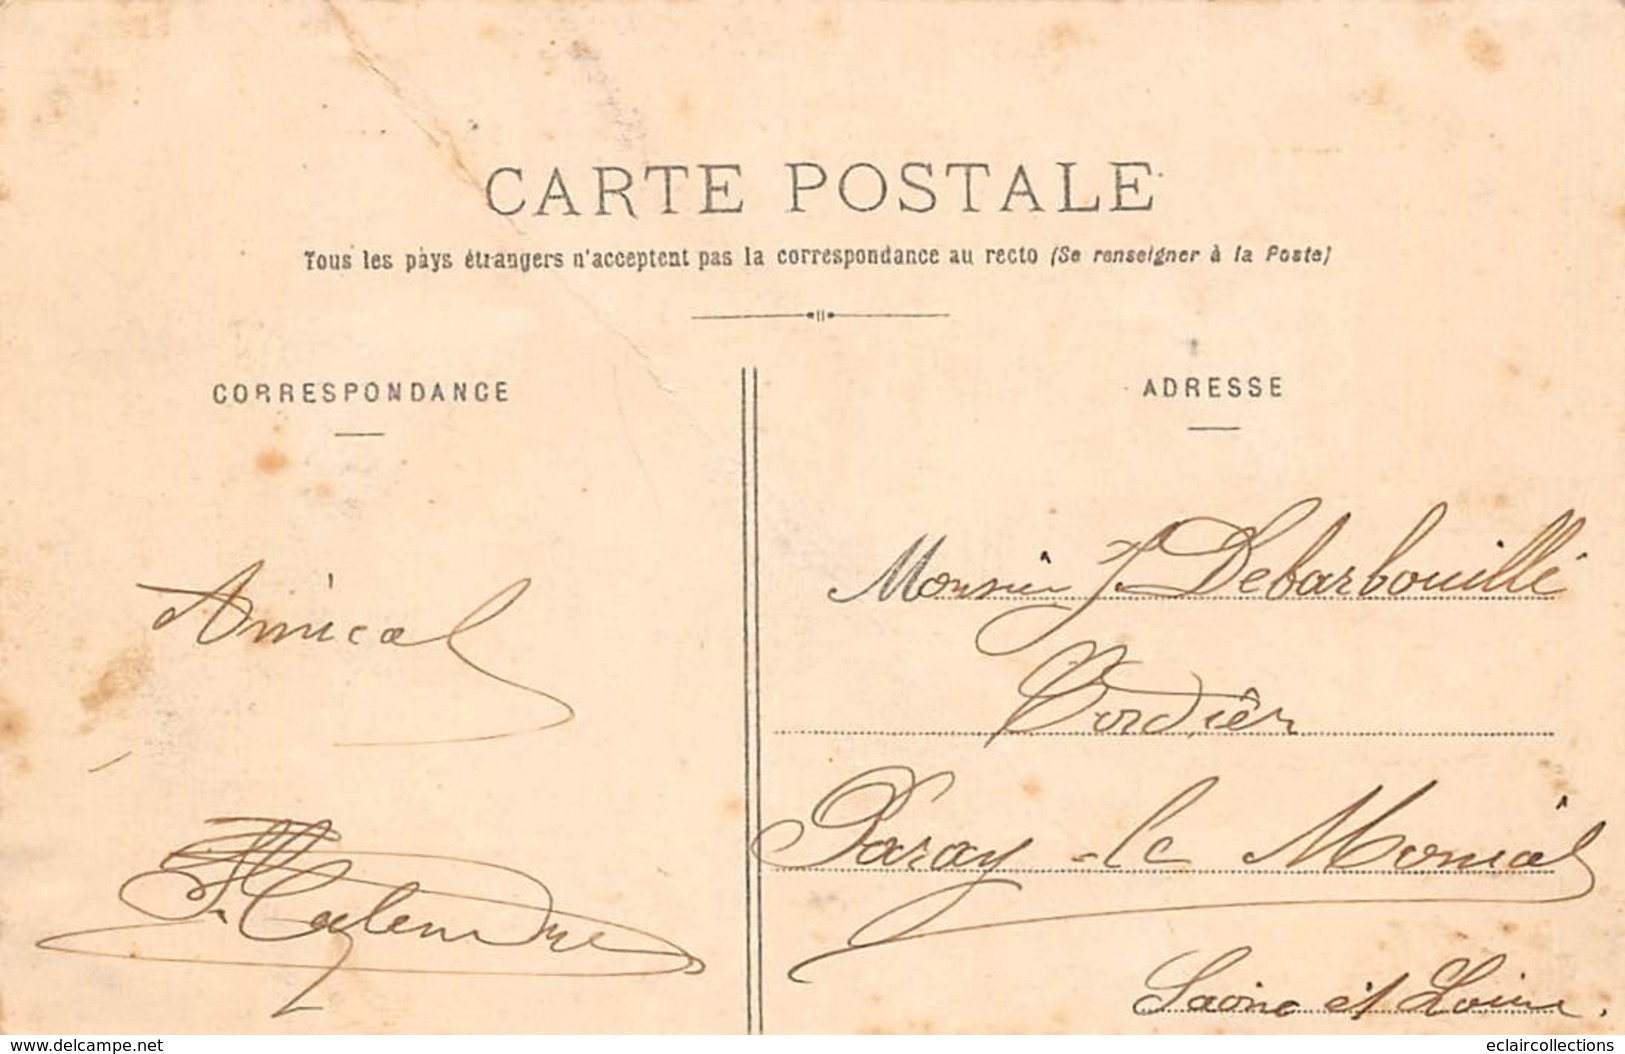 CARTE POSTALE
Tous les pays étrangers n'acceptent pas la correspondance au recto (Se renseigner à la Poste)
CORRESPONDANCE
ADRESSE
Amical
Calendre
Monsieur J. Debarbouillé
Cordier
Paray-le Monial
Saone et Loire.
www.delcampe.net
eclaircollections